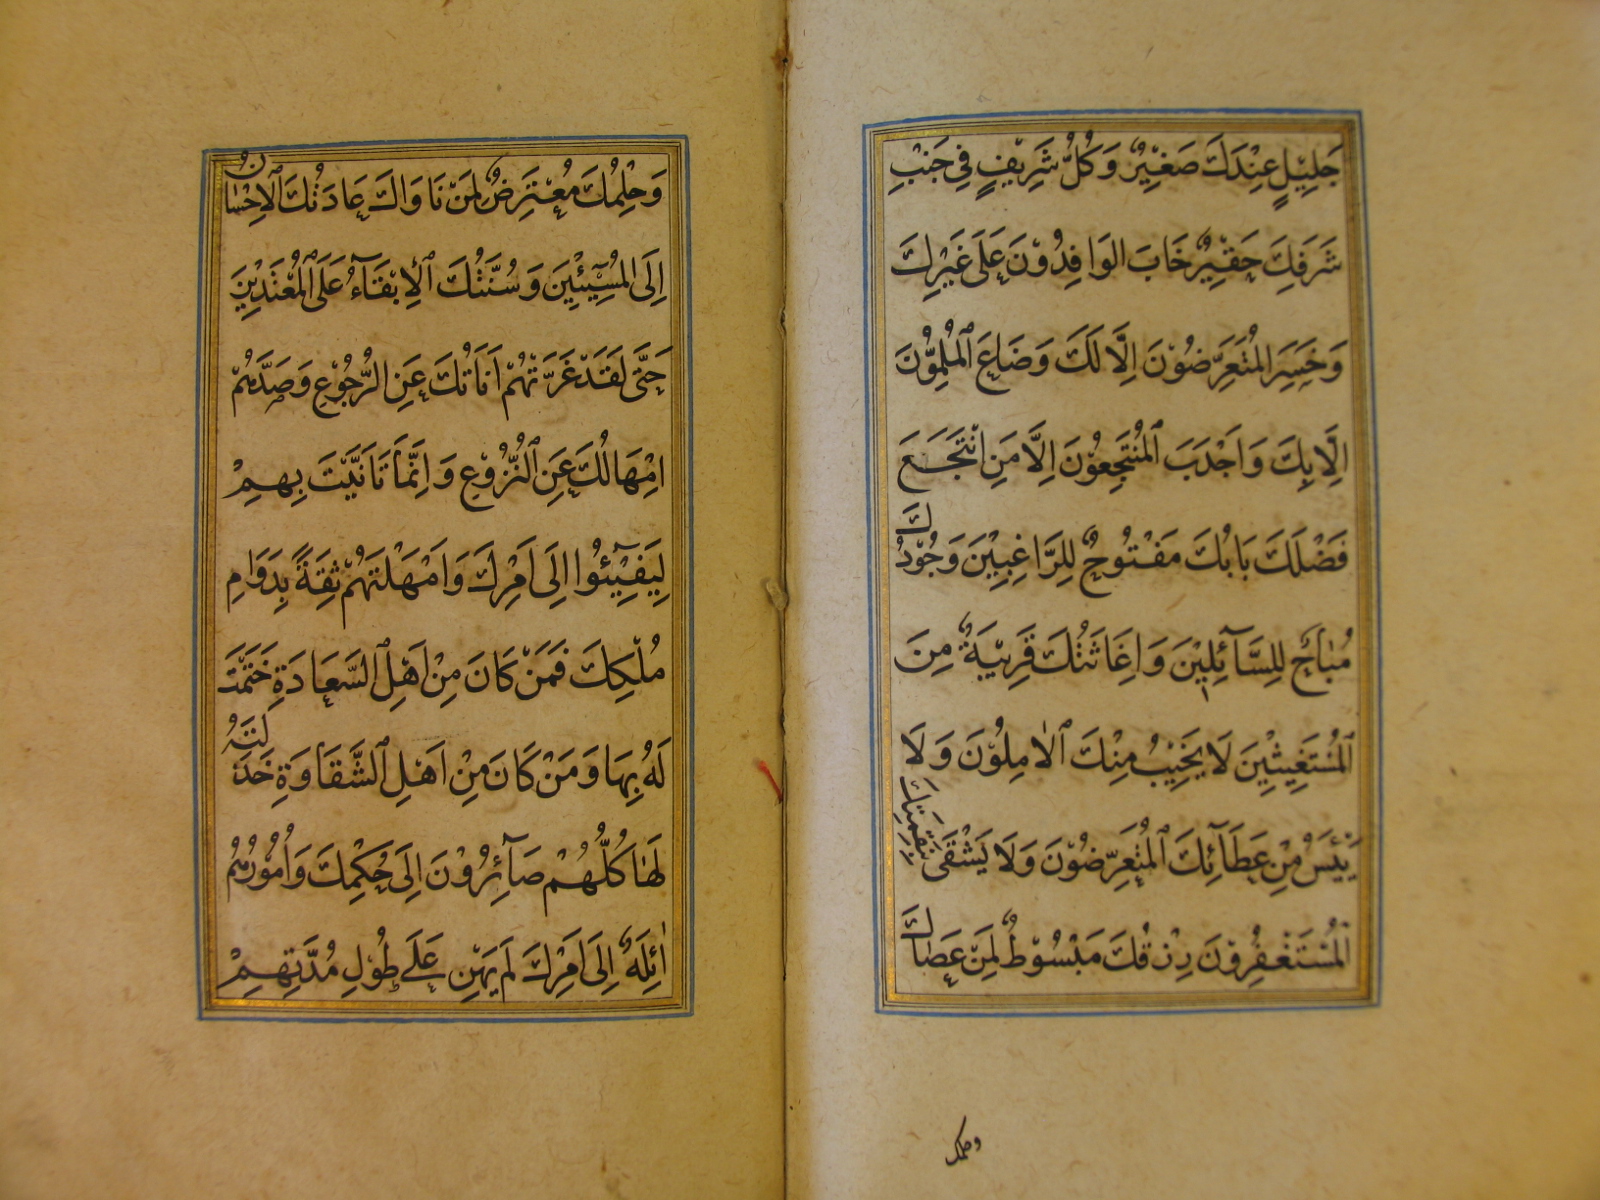 جَلِيْلٍ عِنْدَكَ صَغِيْرٌ وَكُلُّ شَرِيْفٍ فِي جَنْبِ
شَرَفِكَ حَقِيْرٌ خَابَ الوَافِدُوْنَ عَلَى غَيْرِكَ
وَخَسِرَ المُتَعَرِّضُوْنَ اِلَّا لَكَ وَضَاعَ المُلِمُّوْنَ
اِلَّا بِكَ وَاَجْدَبَ المُنْتَجِعُوْنَ اِلَّا مَنِ انْتَجَعَ
فَضْلَكَ بَابُكَ مَفْتُوحٌ لِلرَّاغِبِيْنَ وَجُوْدُكَ
مُبَاحٌ لِلسَّآئِلِيْنَ وَاِغَاثَتُكَ قَرِيْبَةٌ مِنَ
المُسْتَغِيْثِيْنَ لَا يَخِيْبُ مِنْكَ الاٰمِلُوْنَ وَلَا
يَيْئَسُ مِنْ عَطَآئِكَ المُتَعَرِّضُوْنَ وَلَا يَشْقٰى بِنَقِمَتِكَ
المُسْتَغْفِرُوْنَ رِزْقُكَ مَبْسُوْطٌ لِمَنْ عَصَاكَ
وحلمك
وَحِلْمُكَ مُعْتَرِضٌ لِمَنْ نَاوَاكَ عَادَتُكَ الْاِحْسَانُ
اِلَى المُسِيْٓئِيْنَ وَسُنَّتُكَ الْاِبْقَآءُ عَلَى المُعْتَدِيْنَ
حَتّٰى لَقَدْ غَرَّتْهُمْ اَنَاتُكَ عَنِ الرُّجُوْعِ وَصَدَّهُمْ
اِمْهَالُكَ عَنِ النُّزُوْعِ وَاِنَّمَا تَاَنَّيْتَ بِهِمْ
لِيَفِيْٓئُوْا اِلَى اَمْرِكَ وَاَمْهَلْتَهُمْ ثِقَةً بِدَوَامِ
مُلْكِكَ فَمَنْ كَانَ مِنْ اَهْلِ السَّعَادَةِ خَتَمْتَ
لَهُ بِهَا وَمَنْ كَانَ مِنْ اَهْلِ الشَّقَاوَةِ خَذَلْتَهُ
لَهَا كُلُّهُمْ صَآئِرُوْنَ اِلَى حُكْمِكَ وَاُمُوْرُهُمْ
اٰئِلَةٌ اِلَى اَمْرِكَ لَمْ يَهِنْ عَلَى طُوْلِ مُدَّتِهِمْ